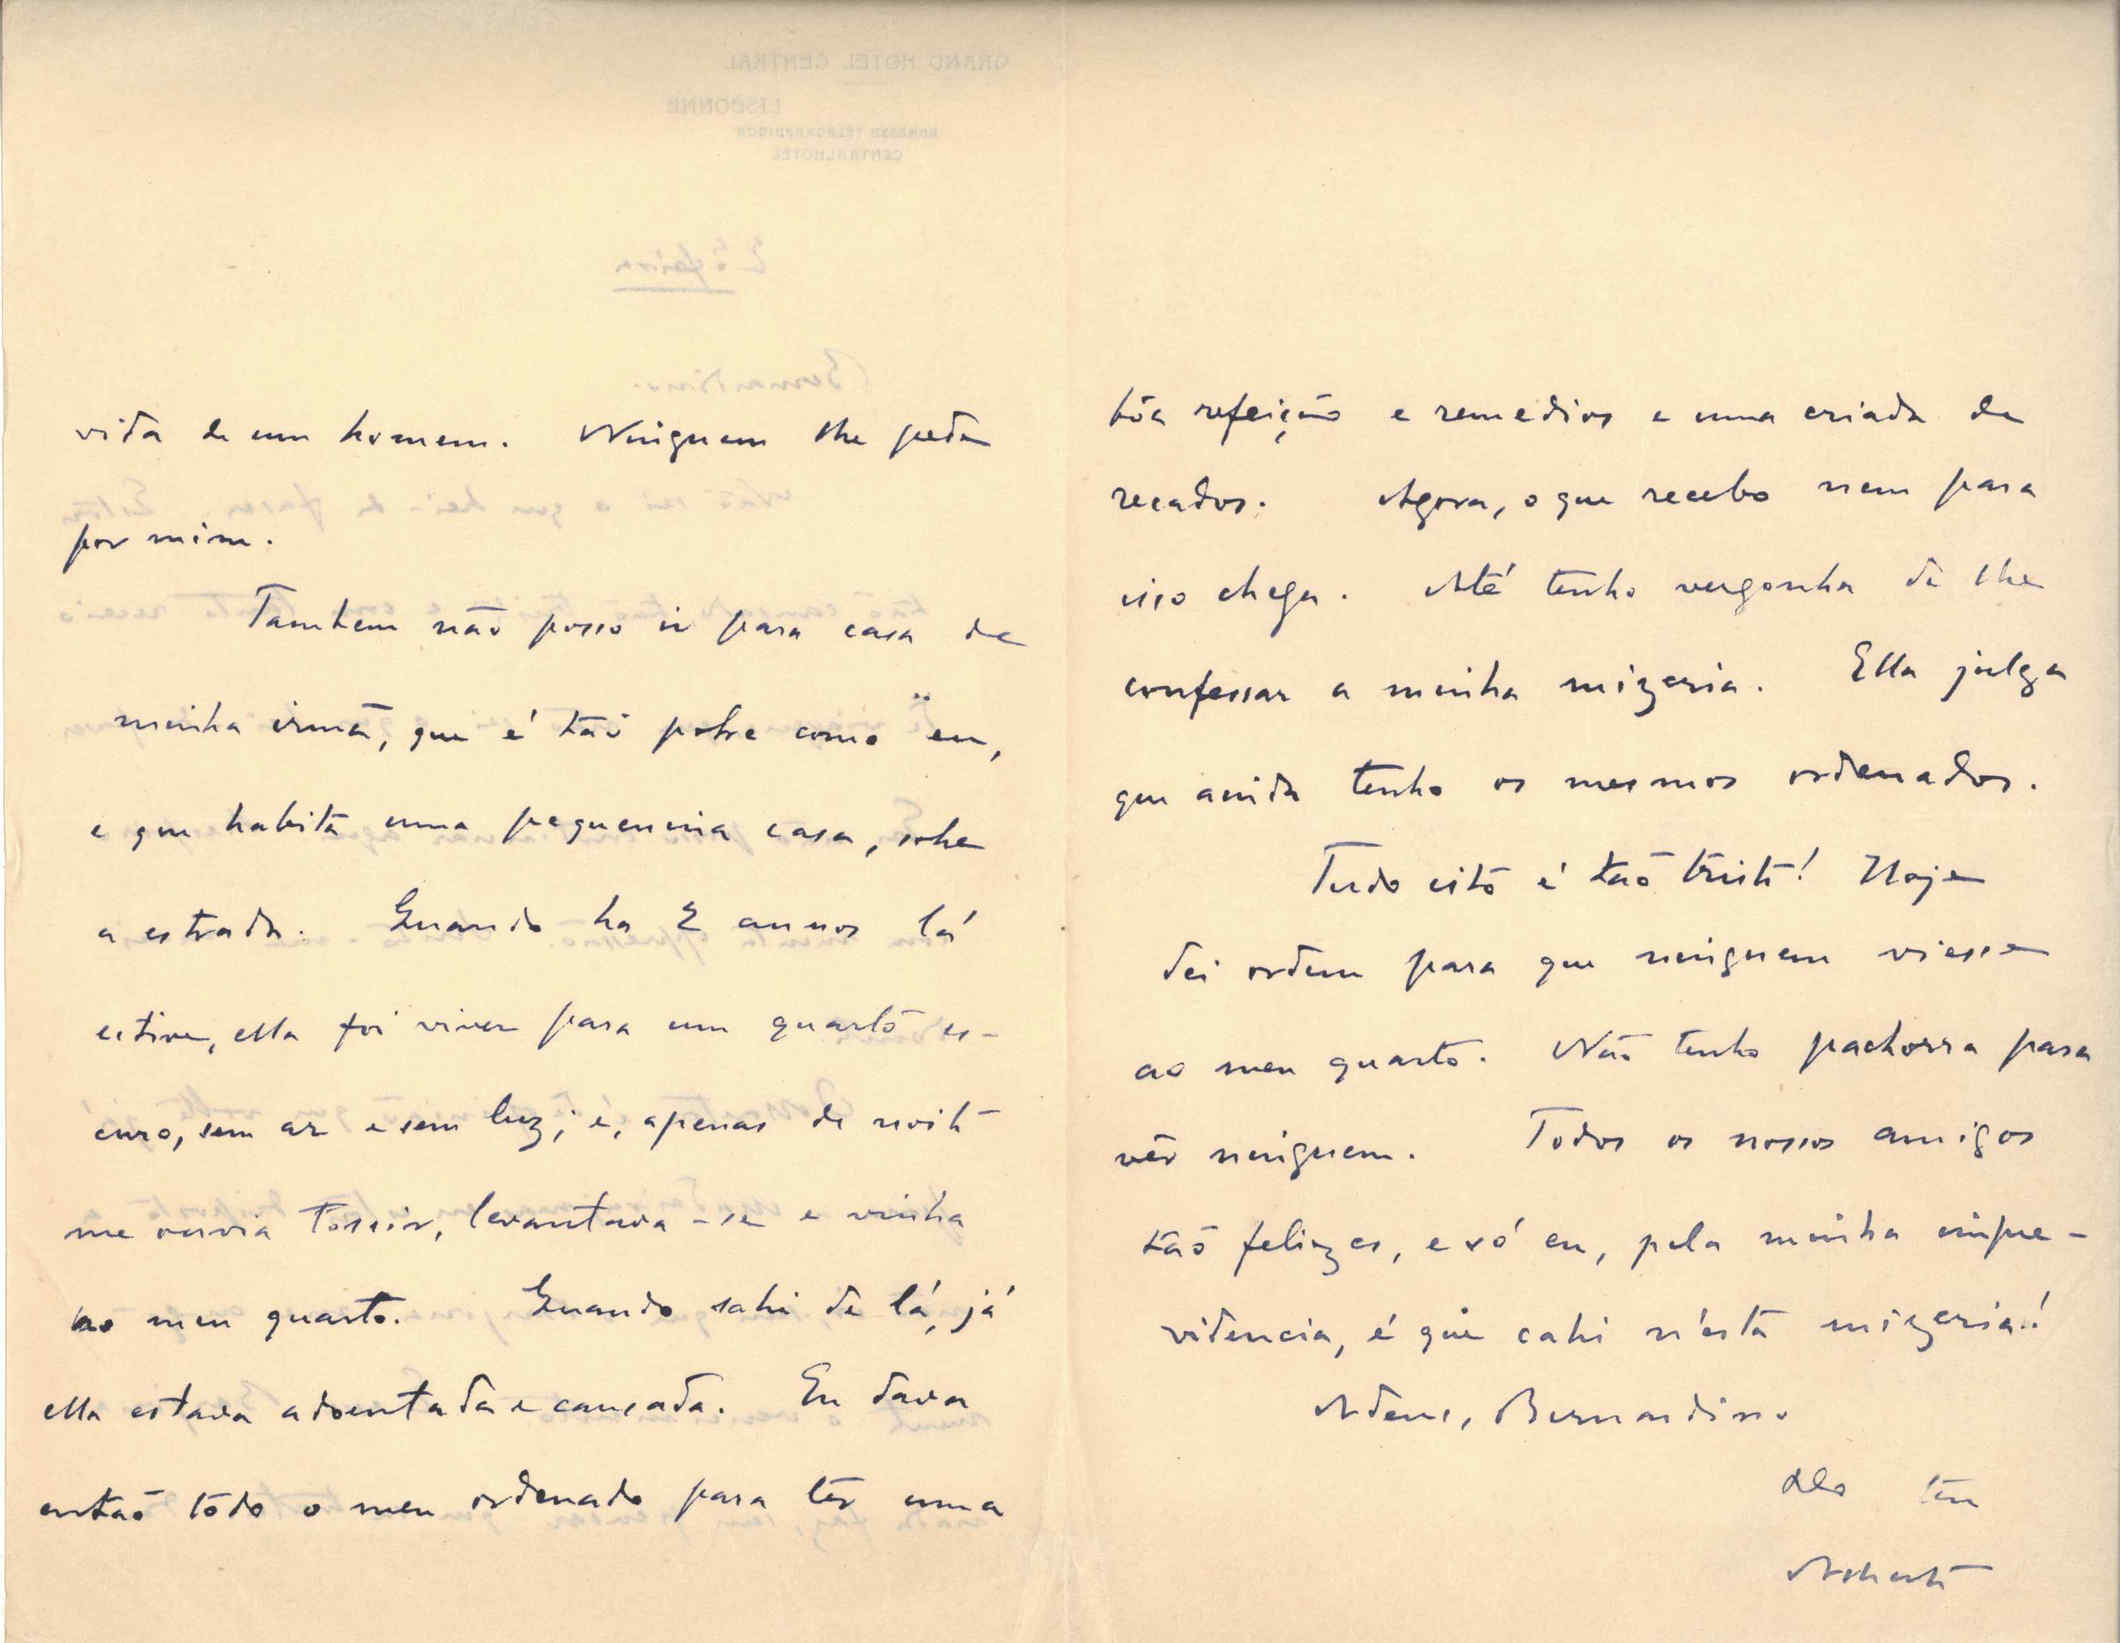 vida de um homem. Ninguem lhe peda
por mim.
Tambem não posso ir para casa de
minha irmã, que é tão pobre como eu,
e que habita uma pequenina casa, sobre
a estrada. Quando ha 2 annos lá
estive, ella foi viver para um quarto es-
curo, sem ar e sem luz; e, apenas de noite
me ouvia tossir, levantava-se e vinha
ao meu quarto. Quando sahi de lá, já
ella estava adoentada e cansada. Eu dava
então tôdo o meu ordenado para têr uma
bôa refeição e remedios e uma criada de
recados. Agora, o que recebo nem para
isso chega. Até tenho vergonha de lhe
confessar a minha mizeria. Ella julga
que ainda tenho os mesmos ordenados.
Tudo isto é tão triste! Hoje
dei ordem para que ninguem viesse
ao meu quarto. Não tenho pachorra para
vêr ninguem. Todos os nossos amigos
tão felizes, e só eu, pela minha impre-
videncia, é que cahi n'esta mizeria!
Adeus, Bernardino
Do teu
Alberto
GRAND HOTEL CENTRAL
LISBONNE
ADRESSE TÉLÉGRAPHIQUE
CENTRALHOTEL
2ª feira
Bernardino.